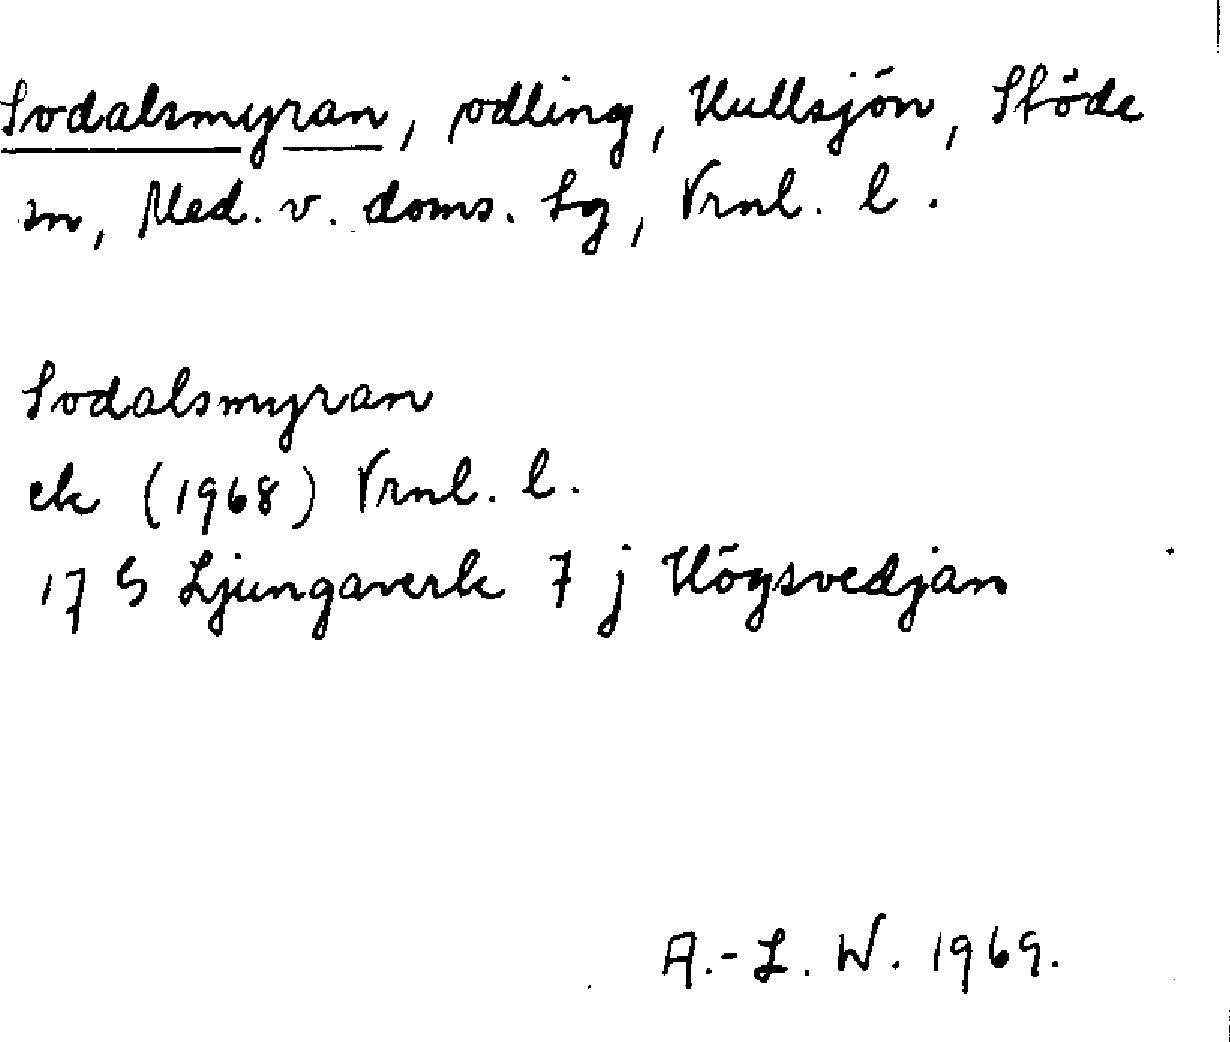 Sodalsmyran, odling, Hullsjön, Stöde
sn, Med. v. doms. Lg, Vrnl. l.
Sodalsmyran
ek (1968) Vrnl. l.
17 G Ljungaverk 7 j Högsvedjan
A.-L. W. 1969.